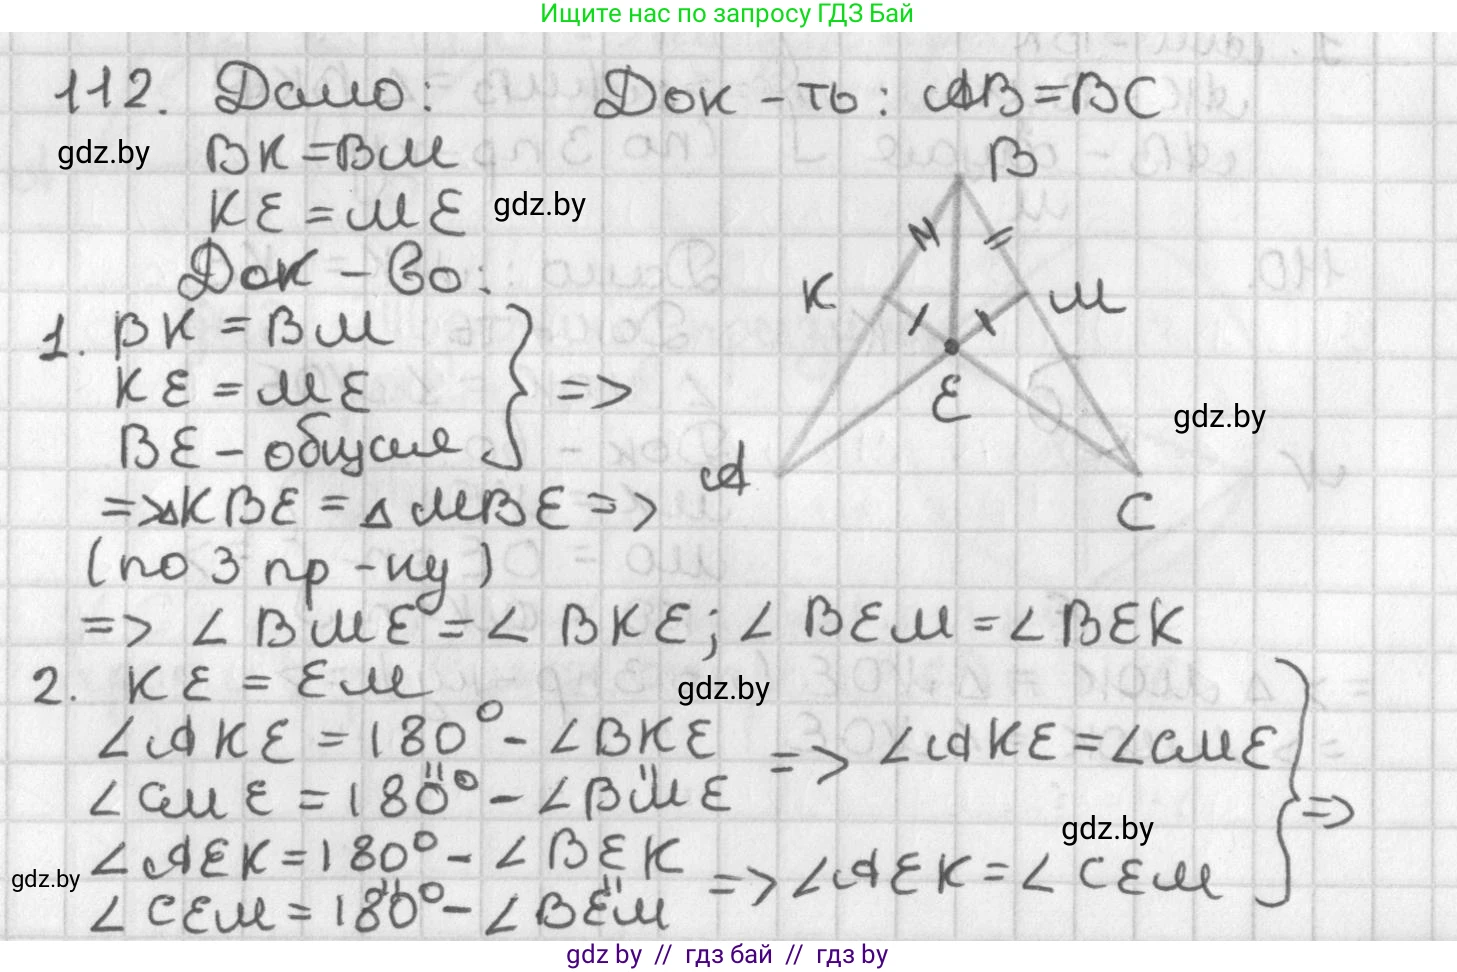 Ищите нас по запросу ГДЗ Бай
112. Дано: Док-ть: AB=BC
gdz.by
BK=BM
KE=ME
gdz.by
Док-во:
B
K
M
E
A
C
gdz.by
1. BK=BM
KE=ME
BE-общая
} =>
=>△KBE=△MBE=>
(по 3 пр-ку)
=> ∠BME=∠BKE; ∠BEM=∠BEK
2. KE=EM
gdz.by
∠AKE=180°-∠BKE
∠CME=180°-∠BME
=> ∠AKE=∠CME
gdz.by
∠AEK=180°-∠BEK
∠CEM=180°-∠BEM
=> ∠AEK=∠CEM
} =>
gdz.by
gdz by // гдз бай // гдз by